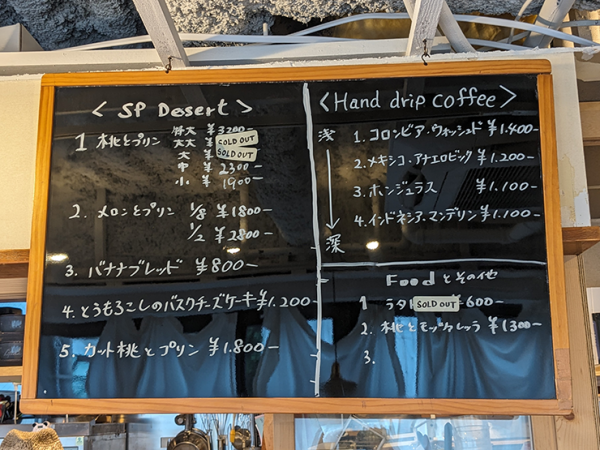 < SP Desert >
1 桃とプリン 特大 ¥3200-
大大 ¥ SOLD OUT
大 ¥ SOLD OUT
中 ¥2300-
小 ¥1900-
2. メロンとプリン 1/8 ¥1800-
1/2 ¥2800-
3. バナナブレッド ¥800-
4. とうもろこしのバスクチーズケーキ ¥1.200-
5. カット桃とプリン ¥1.800-
<Hand drip coffee>
浅
1. コロンビア・ウォッシュド ¥1.400-
2. メキシコ・アナエロビック ¥1.200-
3. ホンジュラス ¥1.100-
4. インドネシア・マンデリン ¥1.100-
深
Foodとその他
1 ラタ SOLD OUT ¥600-
2. 桃とモッツァレッラ ¥1300-
3.